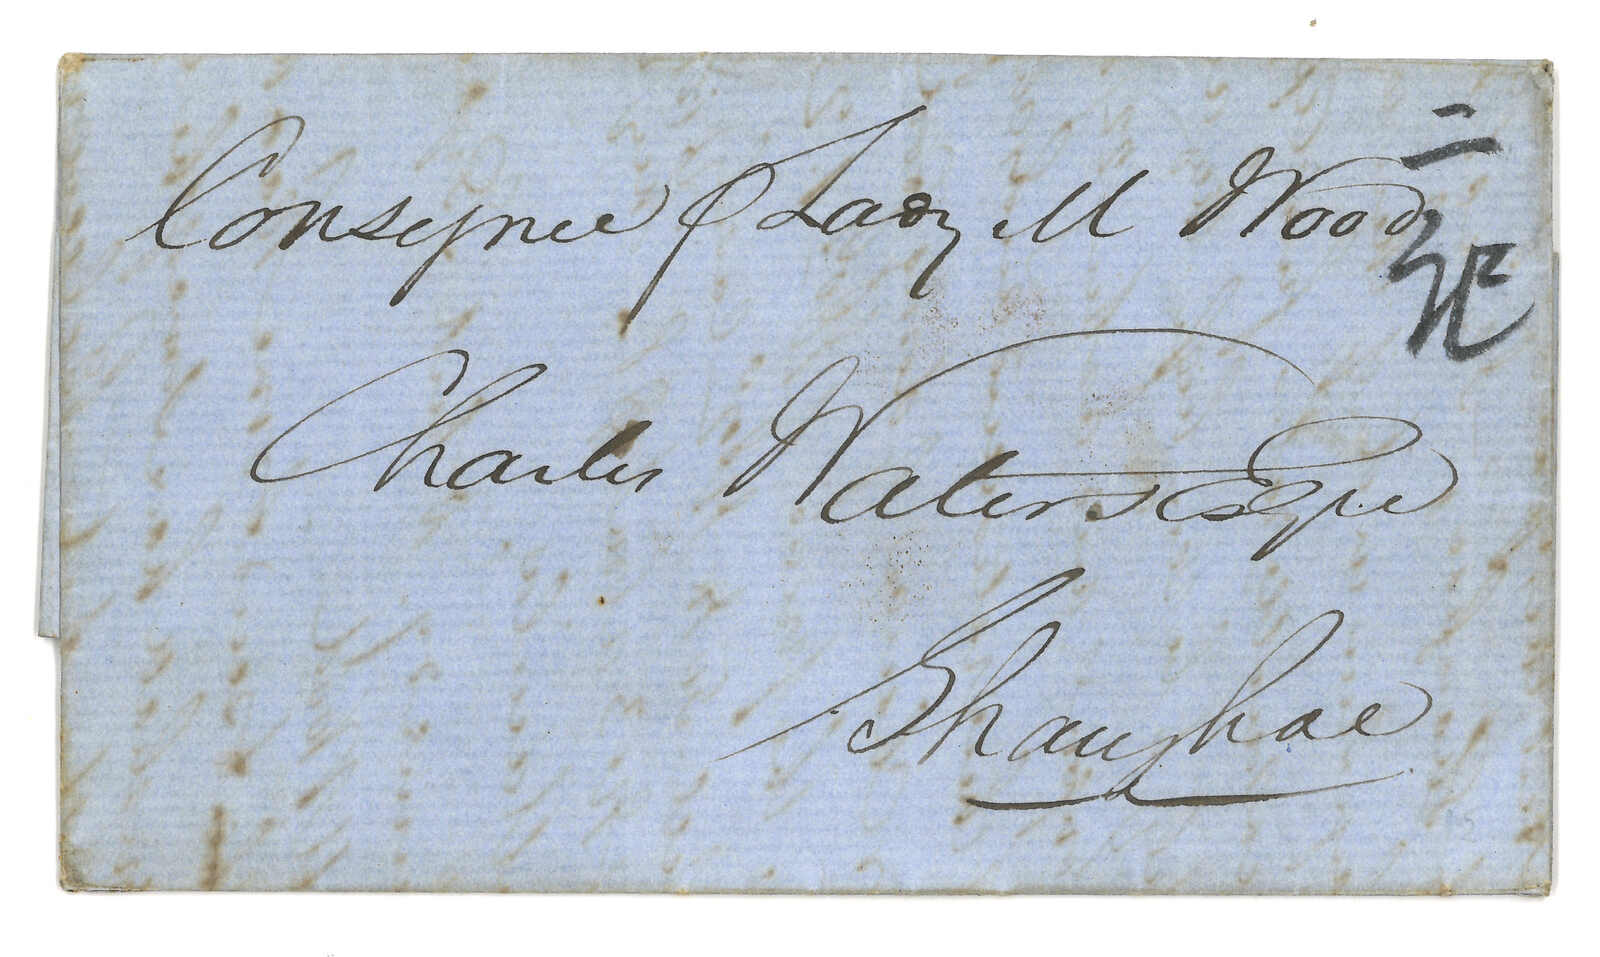 Consignee p Lady M Wood
二
Charles Waters Esqre
Shanghae